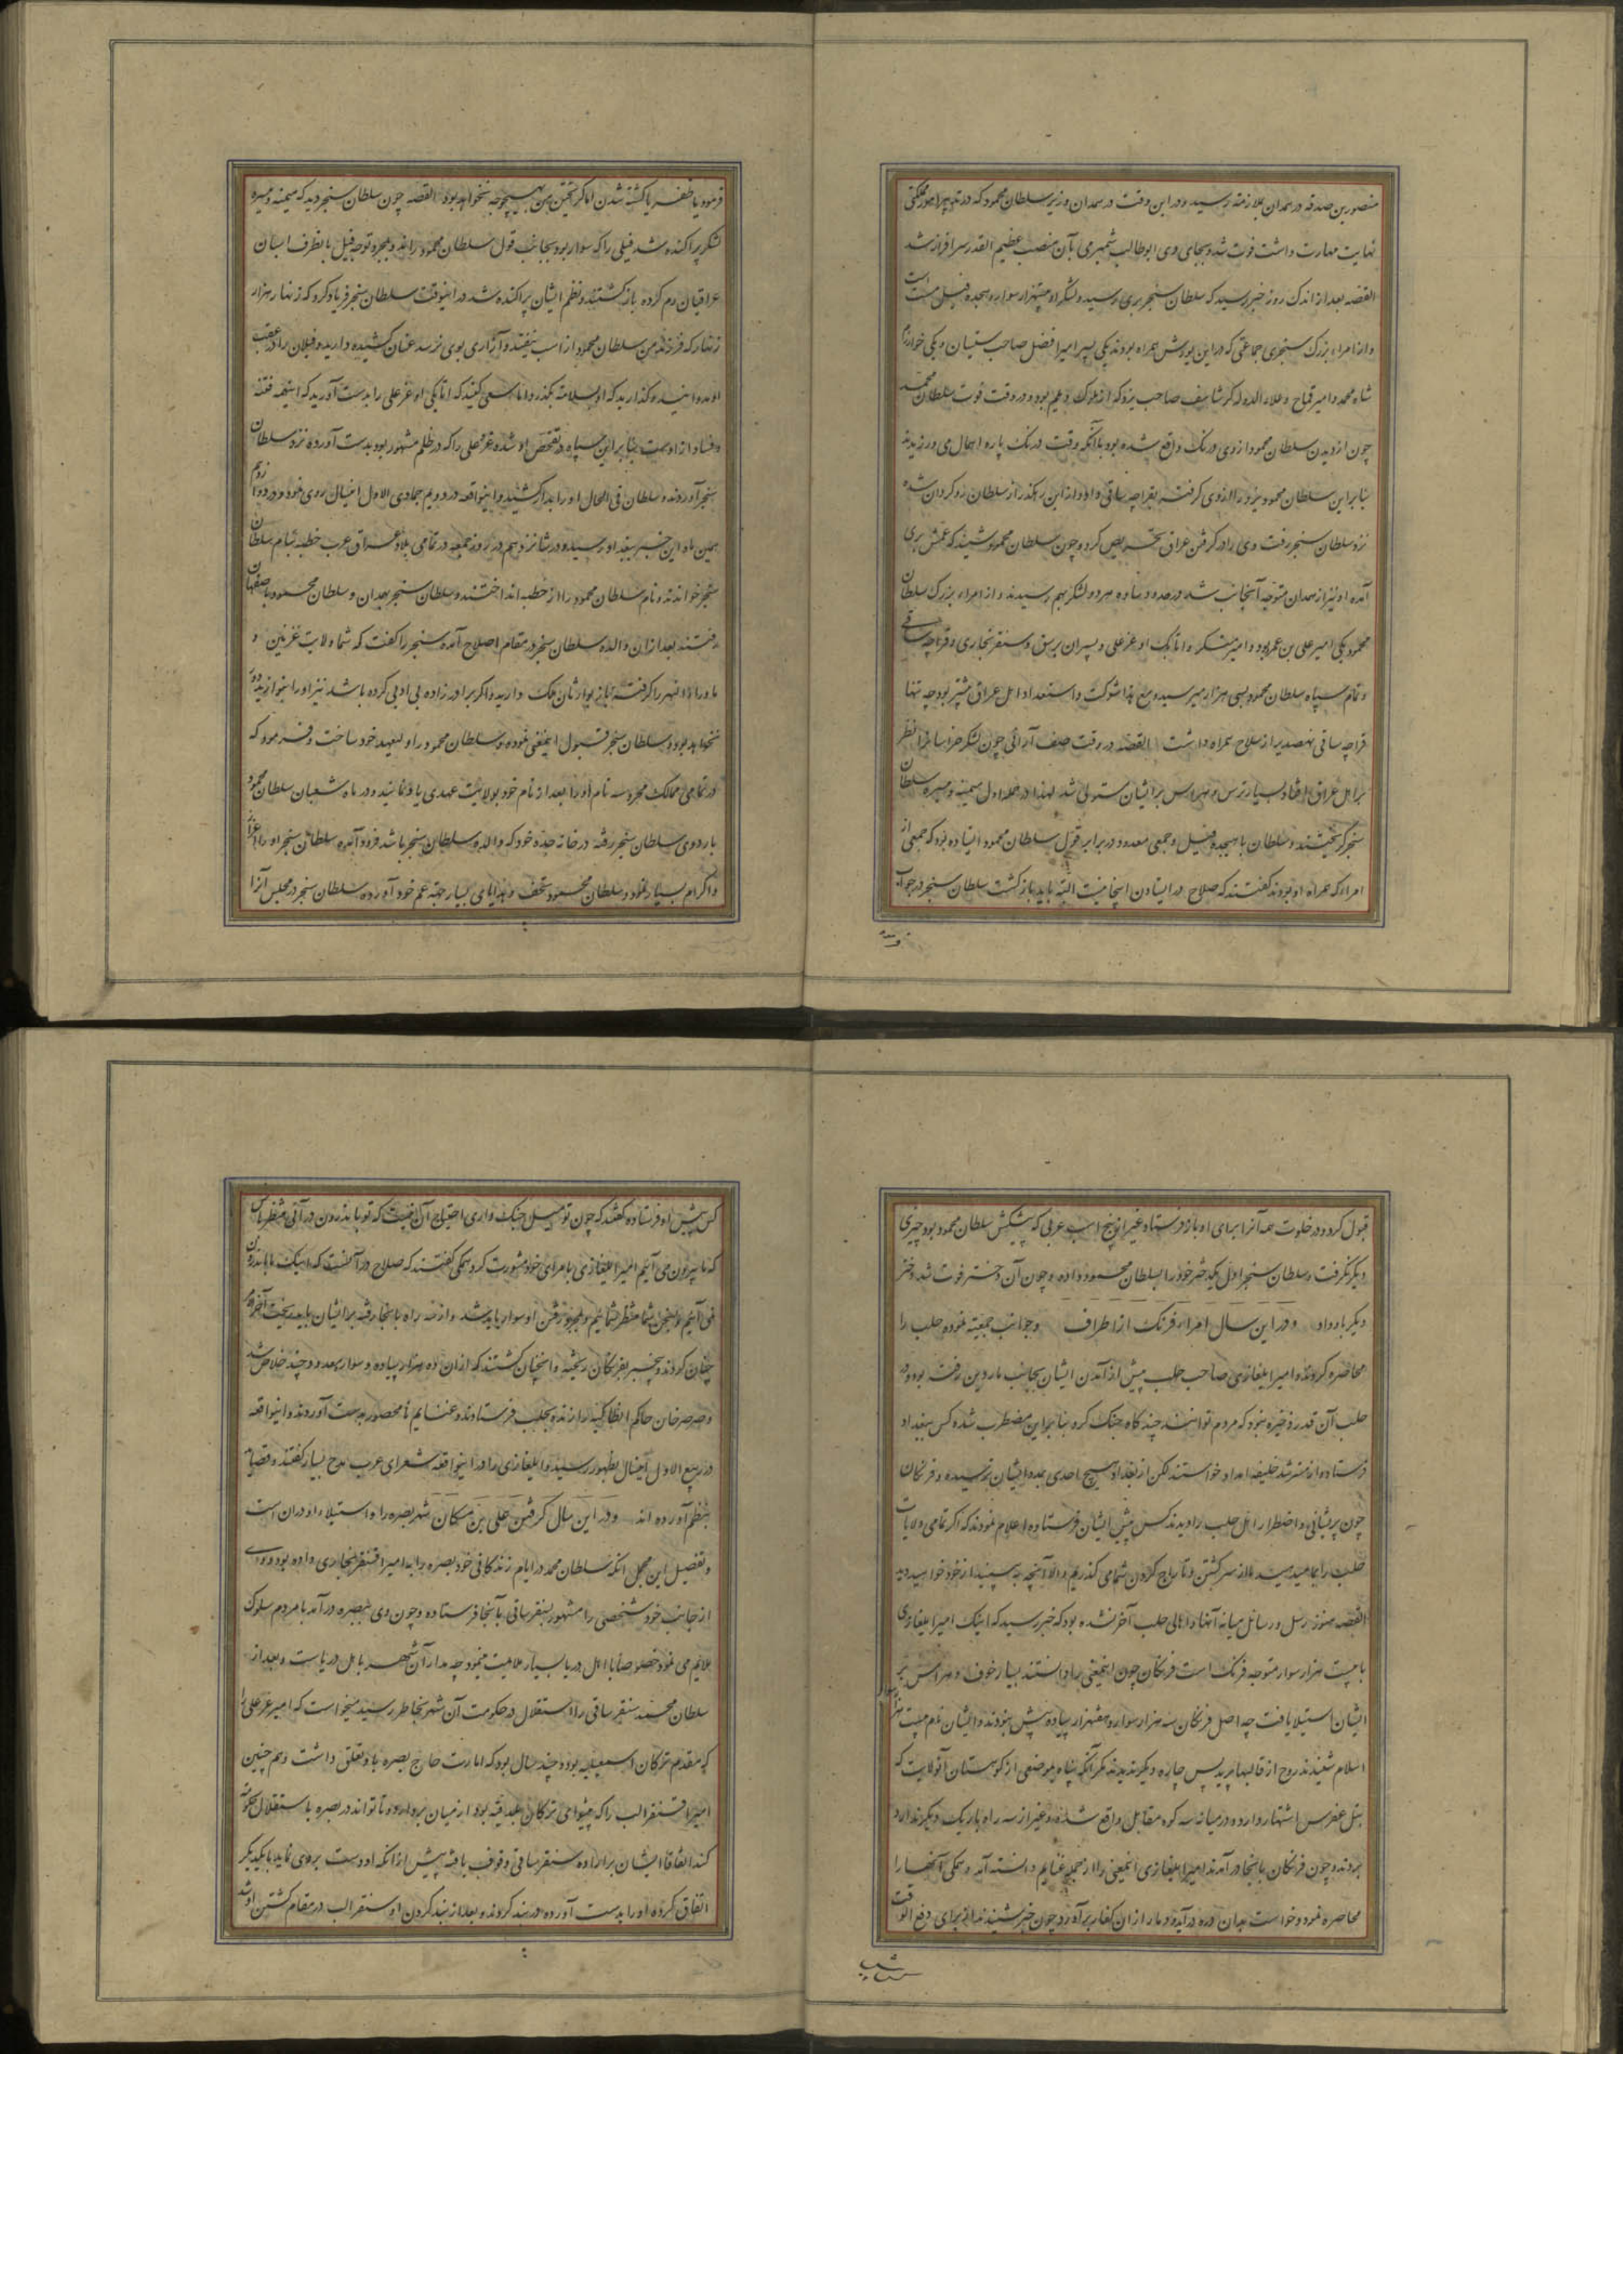 منصور بن صدقه در همدان بملازمت رسید و در این وقت در همدان وزیر سلطان محمود که در تدبیر امور مملکتی
نهایت مهارت داشت فوت شد و بجای وی ابوطالب شمیرمی بآن منصب عظیم القدر سرافراز شد
القصه بعد از اندک روز خبر رسید که سلطان سنجر بری رسید و لشکر او بیستهزار سوار و هجده فیل مست است
و از امراء بزرگ سنجری جماعتی که در این یورش همراه بودند یکی پسر امیر ابوفضل صاحب سیستان و یکی خوارزم
شاه محمد و امیر قماج و علاء الدوله کرشاسف صاحب یزد که از ملوک دیلم بود و در وقت فوت سلطان محمد
چون از دیدن سلطان محمود از وی درنک واقع شده بود با آنکه وقت درنک پاره اهمال می ورزیدند
بنابراین سلطان محمود یزد را از وی کرفته بقراجه ساقی داد و از این رهکذر از سلطان روکردان شده
نزد سلطان سنجر رفت وی را در کرفتن عراق تحریص کرد و چون سلطان محمود شنید که عمش بری
آمده او نیز از همدان متوجه آنجانب شد در حدود ساوه هر دو لشکر بهم رسیدند و از امراء بزرک سلطان
محمود یکی امیر علی بن عمر بود و امیر منکبر و اتابک او غزغلی و پسران برسق و سنقر بخاری و قراجه ساقی
و تمام سپاه سلطان محمود بسی هزار میرسید و مع هذا شوکت و استعداد اهل عراق بیشتر بود چه تنها
قراجه ساقی نهصد بار از سلاح همراه داشت القصه در وقت صف آرائی چون لشکر خراسانرا نظر
بر اهل عراق افتاد بسیار ترس و هراس بر ایشان مستولی شد لهذا در حمله اول میمنه و میسره سلطان
سنجر کریختند و سلطان با هیجده فیل و جمعی معدود در برابر قول سلطان محمود ایستاده بود که جمعی از
امراء که همراه او بودند کفتند که صلاح در ایستادن اینجا نیست البته باید بازکشت سلطان سنجر در جواب
فرمود یا ظفر یا کشته شدن اما کریختن من بهیچوجه نخواهد بود القصه چون سلطان سنجر دید که میمنه و میسره
لشکر پراکنده شد فیلی را که سوار بود بجانب قول سلطان محمود راند و بمجرد توجه فیل بانطرف اسبان
عراقیان رم کرده بازکشتند و نظم ایشان پراکنده شد در اینوقت سلطان سنجر فریاد کرد که زنهار هزار
زنهار که فرزند من سلطان محمود از اسب نیفتد و آزاری بوی نرسد عنان کشیده دارید و فیلان را در عقب
او مدوانید و کذارید که او بسلامت بکذرد اما سعی کنید که اتابکی او غزغلی را بدست آورید که اینهمه فتنه
و فساد از اوست بنابراین سپاه در تفحص او شده غزغلی را که در ظلم مشهور بود بدست آورده نزد سلطان
سنجر آوردند و سلطان فی الحال او را بدار کشید و اینواقعه در دویم جمادی الاول اینسال روی نمود و در دوازدهم
همین ماه این خبر ببغداد رسید و در شانزدهم در روز جمعه در تمامی بلاد عراق عرب خطبه بنام سلطان
سنجر خواندند و نام سلطان محمود را از خطبه انداختند و سلطان سنجر بهمدان و سلطان محمود باصفهان
رفتند بعد از ان والده سلطان سنجر در مقام اصلاح آمده سنجر را کفت که شما ولایت غزنین و
ماوراء النهر را کرفته باز بوارثان ملک دارید و اکر برادرزاده بی ادبی کرده باشد نیز او را بنوازید دور
نخواهد بود و سلطان سنجر قبول اینمعنی نموده و سلطان محمود را ولیعهد خود ساخت و فرمود که
در تمامی ممالک محروسه نام او را بعد از نام خود بولایت عهدی یاد نمایند و در ماه شعبان سلطان محمود
باردوی سلطان سنجر رفته در خانه جده خود که والده سلطان سنجر باشد فرود آمده سلطان سنجر او را اعزاز
و اکرام بسیار نمود و سلطان محمود تحف و هدایای بسیار جهة عم خود آورده سلطان سنجر در مجلس آنرا
قبول کرد و در خلوت همه آنرا برای او باز فرستاد و غیر از پنج اسب عربی که پیشکش سلطان محمود بود چیزی
دیکر نکرفت و سلطان سنجر اول یکدختر خود را بسلطان محمود داده و چون آن دختر فوت شد دختر
دیکر باو داد و در این سال امراء فرنک از اطراف و جوانب جمعیت نموده حلب را
محاصره کردند و امیر ایلغازی صاحب حلب پیش از آمدن ایشان بجانب ماردین رفته بود و در
حلب آن قدر ذخیره نبود که مردم توانند چند کاه جنک کرد بنابراین مضطرب شده کس ببغداد
فرستاده از مسترشد خلیفه امداد خواستند لکن از بغداد هیچ احدی بمدد ایشان نرسیده و فرنکان
چون پریشانی و اضطرار اهل حلب را دیدند کس پیش ایشان فرستاده اعلام نمودند که اکر تمامی ولایات
حلب را بما میدهید ما از سر کشتن و تاراج کردن شما می کذریم و الا آنچه ببینید از خود خواهید دید
القصه هنوز رسل و رسائل میانه آنها و اهالی حلب آخر نشده بود که خبر رسید که اینک امیر ایلغازی
با بیست هزار سوار متوجه فرنک است فرنکان چون اینمعنی را دانستند بسیار خوف و هراس بر
ایشان استیلا یافت چه اصل فرنکان سه هزار سوار و هفتهزار پیاده بیش نبودند و ایشان نام بیست هزار سوار
اسلام شنیدند روح از قالبها پرید پس چاره دیکر ندیدند مکر آنکه پناه بموضعی از کوهستان آنولایت که
بتل عفرس اشتهار دارد و در میانه سه کوه مقابل واقع شده و غیر از سه راه باریک دیکر ندارد
بردند و چون فرنکان بانجا در آمدند امیر ایلغازی اینمعنی را از جمله غنایم دانسته آمد و همکی آنها را
محاصره نمود و خواست بدان دره درآید و دمار از ان کفار برآورد چون خبر شنیدند برای دفع الوقت
کس پیش او فرستاده کفتند که چون تو میل جنک داری احتیاج آن نیست که تو باندرون درآئی منتظر باش
که ما بیرون می آئیم امیر ایلغازی با امرای خود مشورت کرد همکی کفتند که صلاح در آنست که اینک ما باندرون
نمی آئیم و بجنک شما منتظر شمائیم و بمجرد رفتن او سوار باید شد و از سه راه بانجا رفته بر ایشان باید ریخت آخر
چنان کردند و بیخبر بفرنکان ریخته و انچنان کشتند که از ان ده هزار پیاده و سوار معدودی چند خلاص شد
و صرصرخان حاکم انطاکیه را زنده بحلب فرستادند و غنایم نامحصور بدست آوردند و اینواقعه
در ربیع الاول اینسال بظهور رسید و ایلغازی را در اینواقعه شعرای عرب مدح بسیار کفتند و قصاید
بنظم آورده اند و در این سال کرفتن علی بن سکان شهر بصره را و استیلاء او دران است
و تفصیل این مجمل انکه سلطان محمد در ایام زندکانی خود بصره را به امیر اقسنقر بخاری داده بود و وی
از جانب خود شخصی را مشهور بسنقر ساقی بآنجا فرستاده و چون وی ببصره درآمد با مردم سلوک
ملایم می نمود خصوصا با اهل دریا بسیار ملایمت مینمود چه مدار آن شهر باهل دریاست و بعد از
سلطان محمد سنقر ساقی را استقلال در حکومت آن شهر بخاطر رسید میخواست که امیر غزغلی را
که مقدم ترکان اسمعیلیه بود و چند سال بود که امارت حاج بصره باو تعلق داشت و هم چنین
امیر اقسنقر الب را که پیشوای ترکان بلدقیه بود از میان بردارد و تا تواند در بصره باستقلال حکومت
کند اتفاقا ایشان بر اراده سنقر ساقی وقوف یافته پیش از انکه او دست بردی نماید با یکدیکر
اتفاق کرده او را بدست آورده در بند کردند و بعد از بند کردن او سنقر الب در مقام کشتن او شد